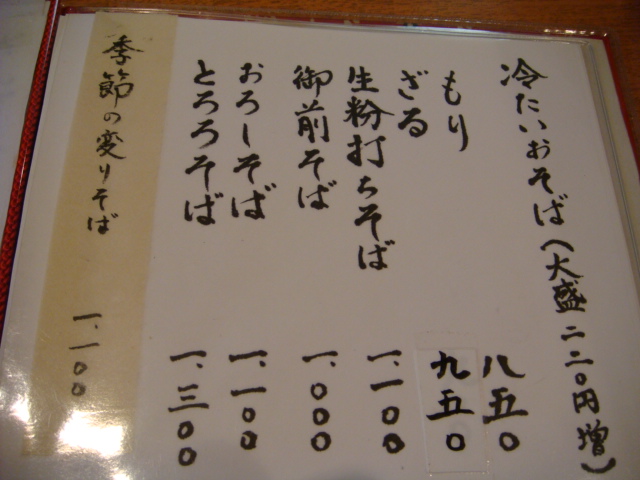 冷たいおそば(大盛二二〇円増)
もり 八五〇
ざる 九五〇
生粉打ちそば 一、一〇〇
御前そば 一、〇〇〇
おろしそば 一、一〇〇
とろろそば 一、三〇〇
季節の変りそば 一、一〇〇